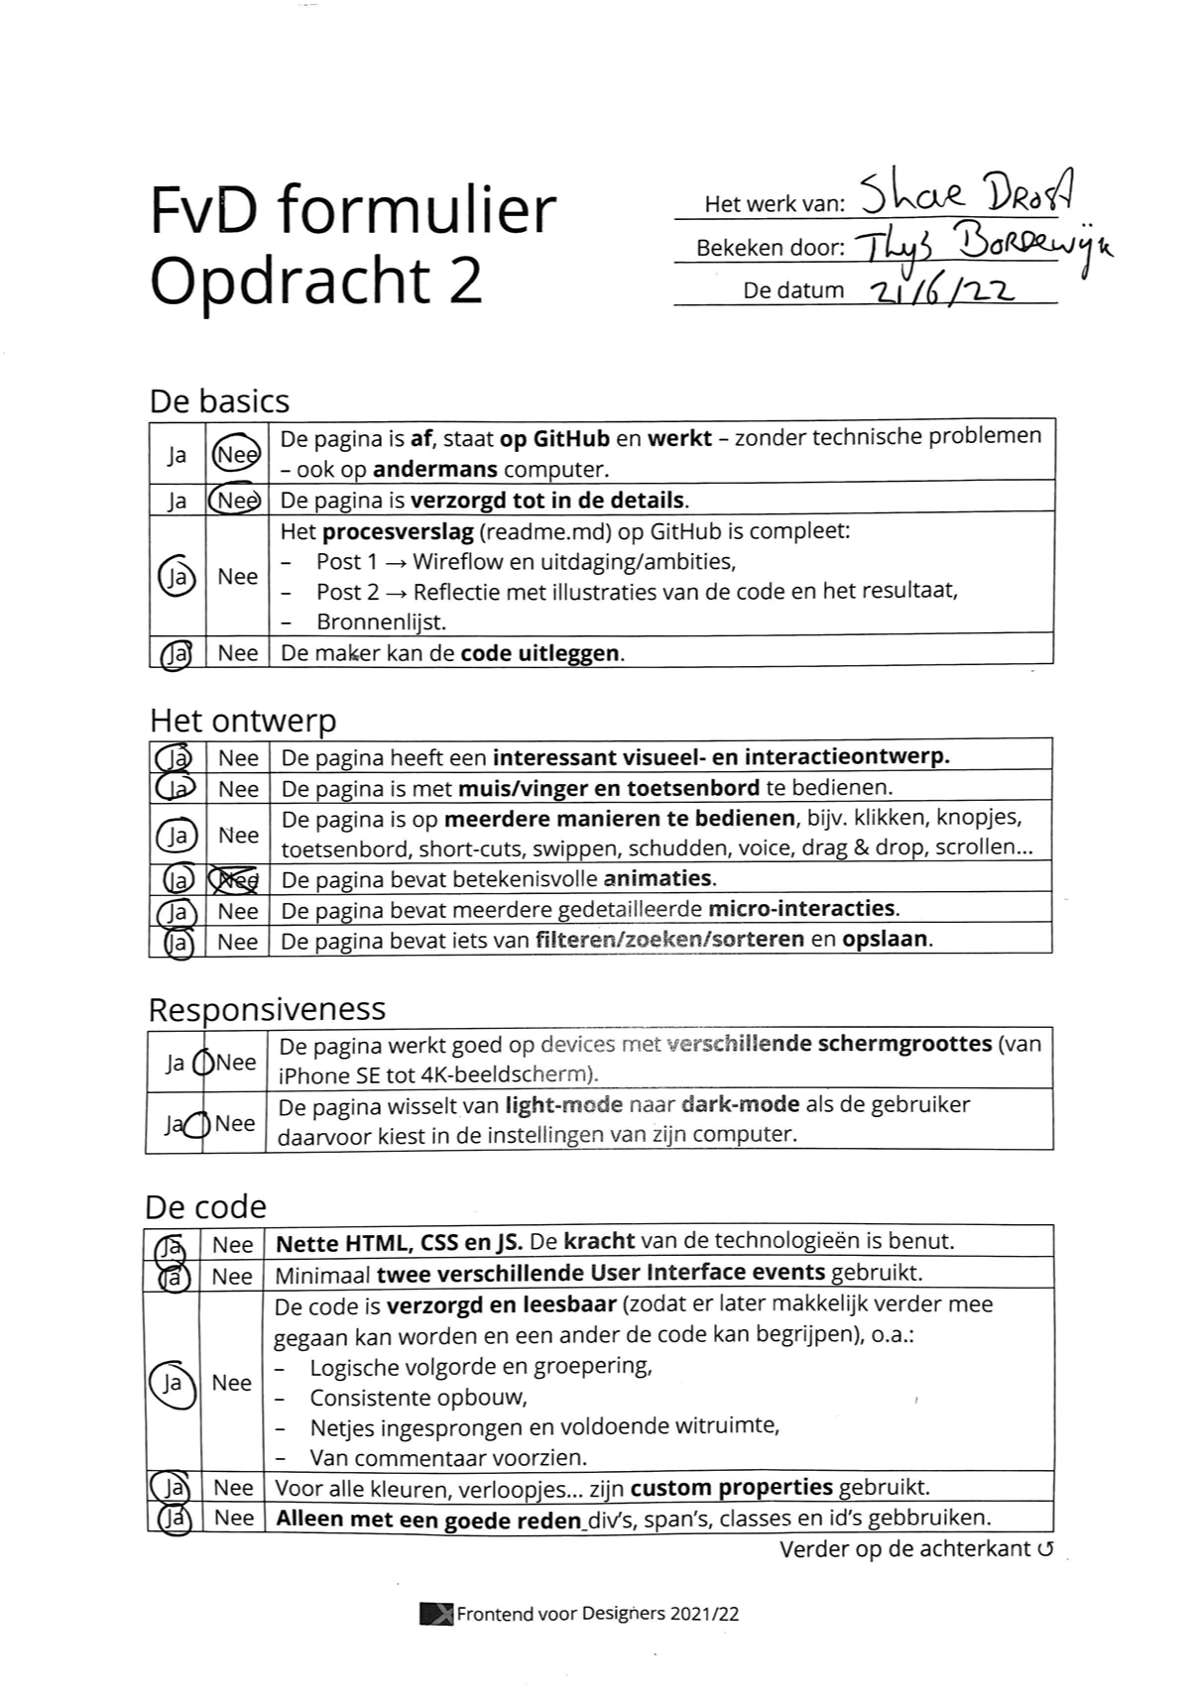 FvD formulier
Opdracht 2
Het werk van: Shae Drost
Bekeken door: Thys Bordewijk
De datum 21/6/22
De basics
Ja Nee De pagina is af, staat op GitHub en werkt – zonder technische problemen
– ook op andermans computer.
Ja Nee De pagina is verzorgd tot in de details.
Het procesverslag (readme.md) op GitHub is compleet:
– Post 1 → Wireflow en uitdaging/ambities,
Ja Nee
– Post 2 → Reflectie met illustraties van de code en het resultaat,
– Bronnenlijst.
Ja Nee De maker kan de code uitleggen.
Het ontwerp
Ja Nee De pagina heeft een interessant visueel- en interactieontwerp.
Ja Nee De pagina is met muis/vinger en toetsenbord te bedienen.
Ja Nee De pagina is op meerdere manieren te bedienen, bijv. klikken, knopjes,
toetsenbord, short-cuts, swippen, schudden, voice, drag & drop, scrollen...
Ja Nee De pagina bevat betekenisvolle animaties.
Ja Nee De pagina bevat meerdere gedetailleerde micro-interacties.
Ja Nee De pagina bevat iets van filteren/zoeken/sorteren en opslaan.
Responsiveness
Ja Nee De pagina werkt goed op devices met verschillende schermgroottes (van
iPhone SE tot 4K-beeldscherm).
Ja Nee De pagina wisselt van light-mode naar dark-mode als de gebruiker
daarvoor kiest in de instellingen van zijn computer.
De code
Ja Nee Nette HTML, CSS en JS. De kracht van de technologieën is benut.
Ja Nee Minimaal twee verschillende User Interface events gebruikt.
De code is verzorgd en leesbaar (zodat er later makkelijk verder mee
gegaan kan worden en een ander de code kan begrijpen), o.a.:
– Logische volgorde en groepering,
Ja Nee
– Consistente opbouw,
– Netjes ingesprongen en voldoende witruimte,
– Van commentaar voorzien.
Ja Nee Voor alle kleuren, verloopjes... zijn custom properties gebruikt.
Ja Nee Alleen met een goede reden div's, span's, classes en id's gebbruiken.
Verder op de achterkant ↺
Frontend voor Designers 2021/22